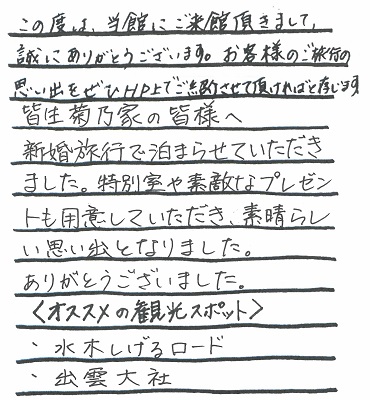 この度は、当館にご来館頂きまして、
誠にありがとうございます。お客様のご旅行の
思い出をぜひHP上でご紹介させて頂ければと存じます
皆生菊乃家の皆様へ
新婚旅行で泊まらせていただき
ました。特別室や素敵なプレゼン
トも用意していただき、素晴らし
い思い出となりました。
ありがとうございました。
<オススメの観光スポット>
・水木しげるロード
・出雲大社